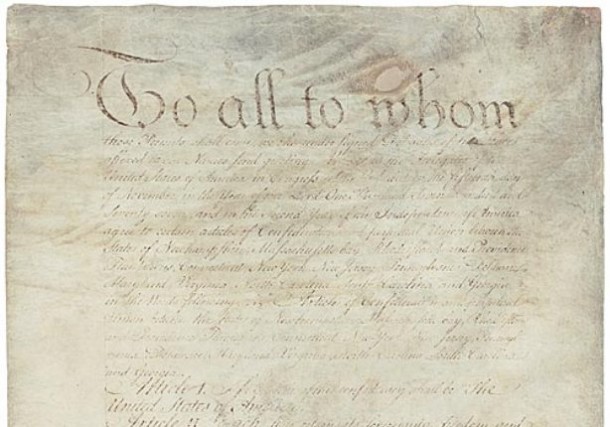 To all to whom
these Presents shall come, we the under signed Delegates of the States
affixed to our Names send greeting. Whereas the Delegates of the
United States of America in Congress assembled did on the fifteenth day
of November in the Year of our Lord One Thousand Seven Hundred and
Seventy seven, and in the Second Year of the Independence of America
agree to certain articles of Confederation and perpetual Union between the
States of Newhampshire, Massachusetts bay, Rhodeisland and Providence
Plantations, Connecticut, New York, New Jersey, Pennsylvania, Delaware,
Maryland, Virginia, North Carolina, South Carolina and Georgia
in the Words following, viz. Articles of Confederation and perpetual
Union between the States of Newhampshire, Massachusetts bay, Rhodeisland
and Providence Plantations, Connecticut, New York, New Jersey, Pennsyl
vania, Delaware, Maryland, Virginia, North Carolina, South Carolina
and Georgia.
Article I. The Stile of this confederacy shall be "The
United States of America."
Article II. Each state retains its sovereignty, freedom and